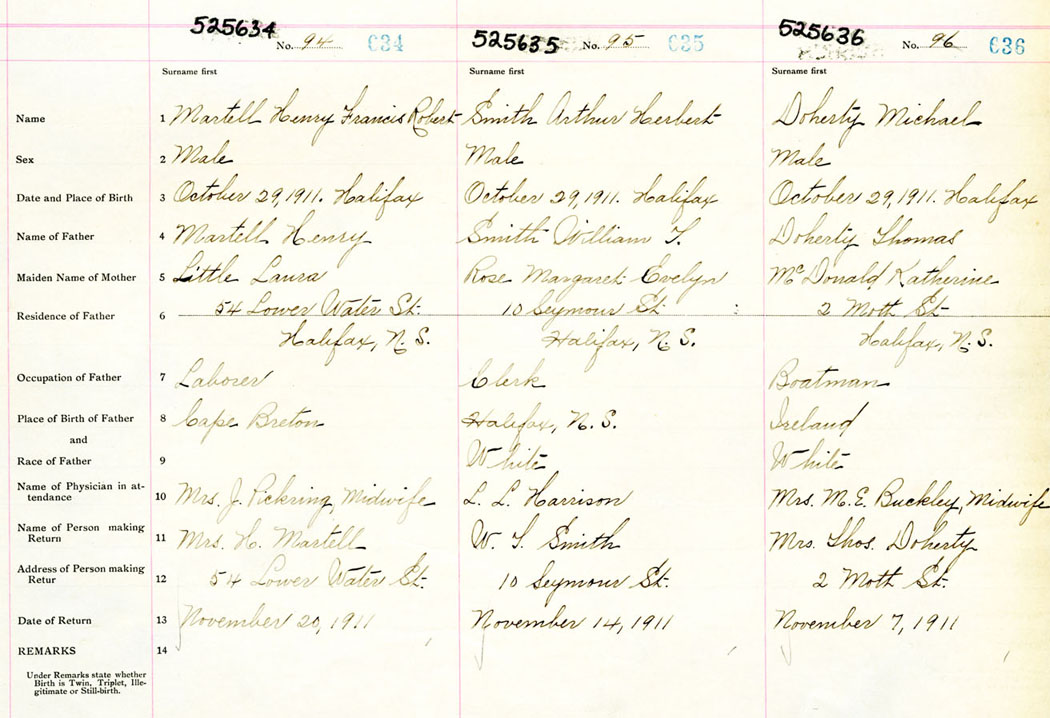 525634 No. 94 634 525635 No. 95 635 525636 No. 96 636
Surname first Surname first Surname first
Name 1 Martell Henry Francis Robert Smith Arthur Herbert Doherty Michael
Sex 2 Male Male Male
Date and Place of Birth 3 October 29, 1911. Halifax October 29, 1911. Halifax October 29, 1911. Halifax
Name of Father 4 Martell Henry Smith William T. Doherty Thomas
Maiden Name of Mother 5 Little Laura Rose Margaret Evelyn McDonald Katherine
Residence of Father 6 54 Lower Water St. 10 Seymour St. 2 Moth St.
Halifax, N.S. Halifax, N.S. Halifax, N.S.
Occupation of Father 7 Laborer Clerk Boatman
Place of Birth of Father 8 Cape Breton Halifax, N.S. Ireland
and
Race of Father 9 White White
Name of Physician in at-
tendance 10 Mrs. J. Pickring, Midwife L. L. Harrison Mrs. M.E. Buckley, Midwife
Name of Person making
Return 11 Mrs. H. Martell W. T. Smith Mrs. Thos. Doherty
Address of Person making
Retur 12 54 Lower Water St. 10 Seymour St. 2 Moth St.
Date of Return 13 November 20, 1911 November 14, 1911 November 7, 1911
REMARKS 14
Under Remarks state whether
Birth is Twin, Triplet, Ille-
gitimate or Still-birth.